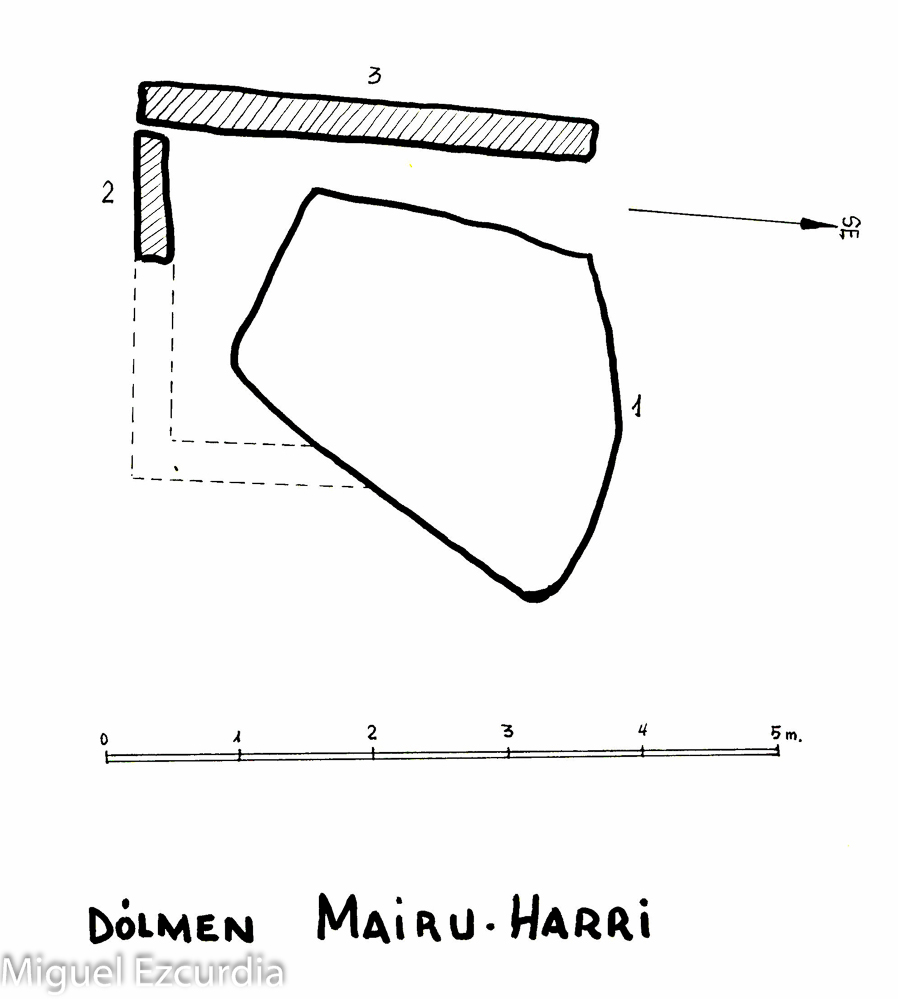 3
2
SE
1
0 1 2 3 4 5 m.
DÓLMEN MAIRU·HARRI
Miguel Ezcurdia